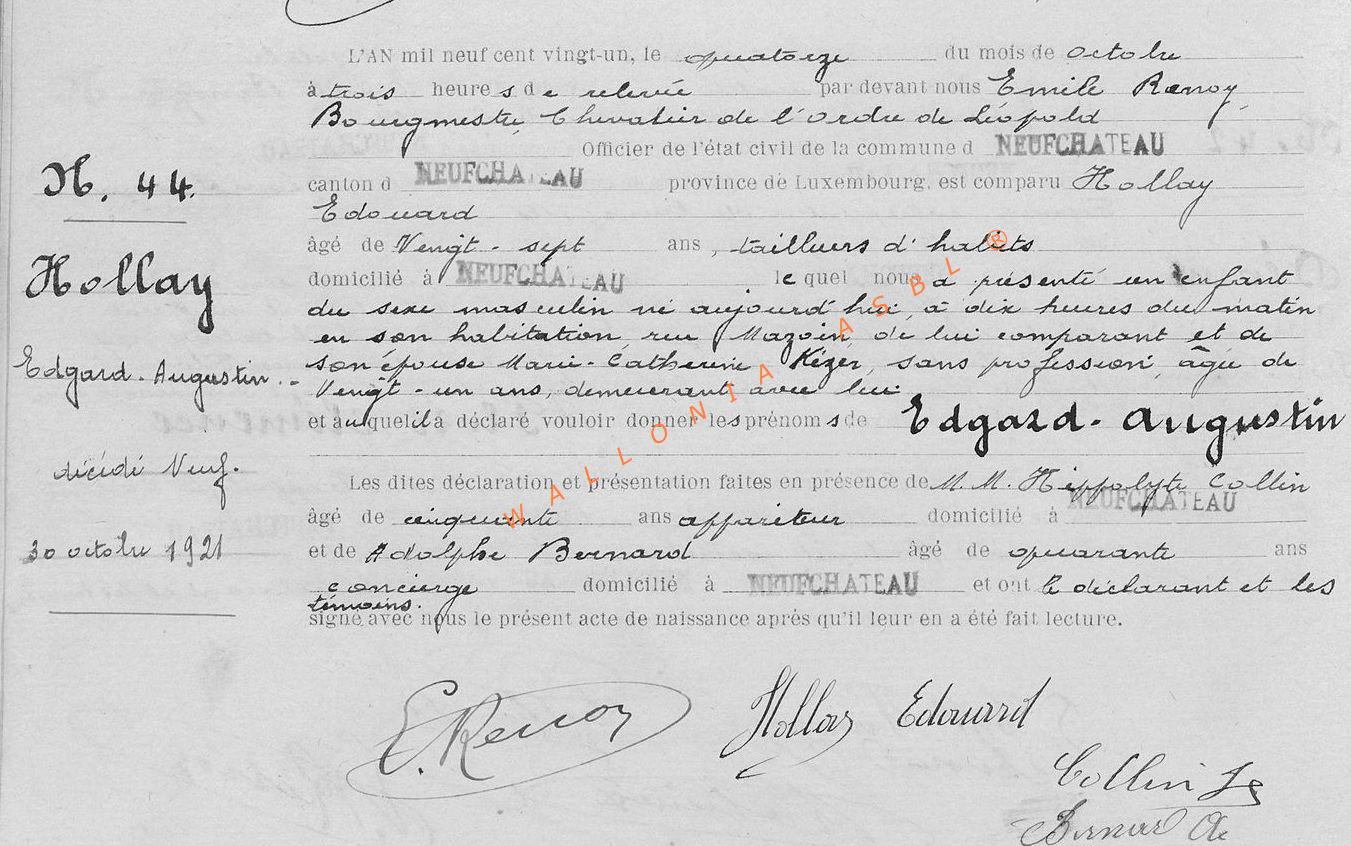 L'AN mil neuf cent vingt-un, le quatorze du mois de octobre
à trois heures de relevée par devant nous Emile Renoy,
Bourgmestre, Chevalier de l'ordre de Léopold
Officier de l'état civil de la commune d NEUFCHATEAU
N. 44.
canton d NEUFCHATEAU province de Luxembourg, est comparu Hollay
Edouard
âgé de Vengt-sept ans, tailleurs d'habits
Hollay
domicilié à NEUFCHATEAU lequel nous a présenté un enfant
du sexe masculin né aujourd'hui, à dix heures du matin
en son habitation, rue Mazoin, de lui comparant et de
Edgard-Augustin.-
son épouse Marie-Catherine Kézer, sans profession, âgée de
Vengt-un ans, demeurant avec lui
et auquel il a déclaré vouloir donner les prénoms de Edgard-Augustin
décédé Neuf.
Les dites déclaration et présentation faites en présence de M.M. Hippolyte Collin
âgé de cinquante ans appariteur domicilié à NEUFCHATEAU
30 octobre 1921
et de Adolphe Bernard âgé de quarante ans
concierge domicilié à NEUFCHATEAU et ont le déclarant et les
témoins.
signé avec nous le présent acte de naissance après qu'il leur en a été fait lecture.
WALLONIA ASBL ®
E. Renoy
Hollay Edouard
Collin
Bernard